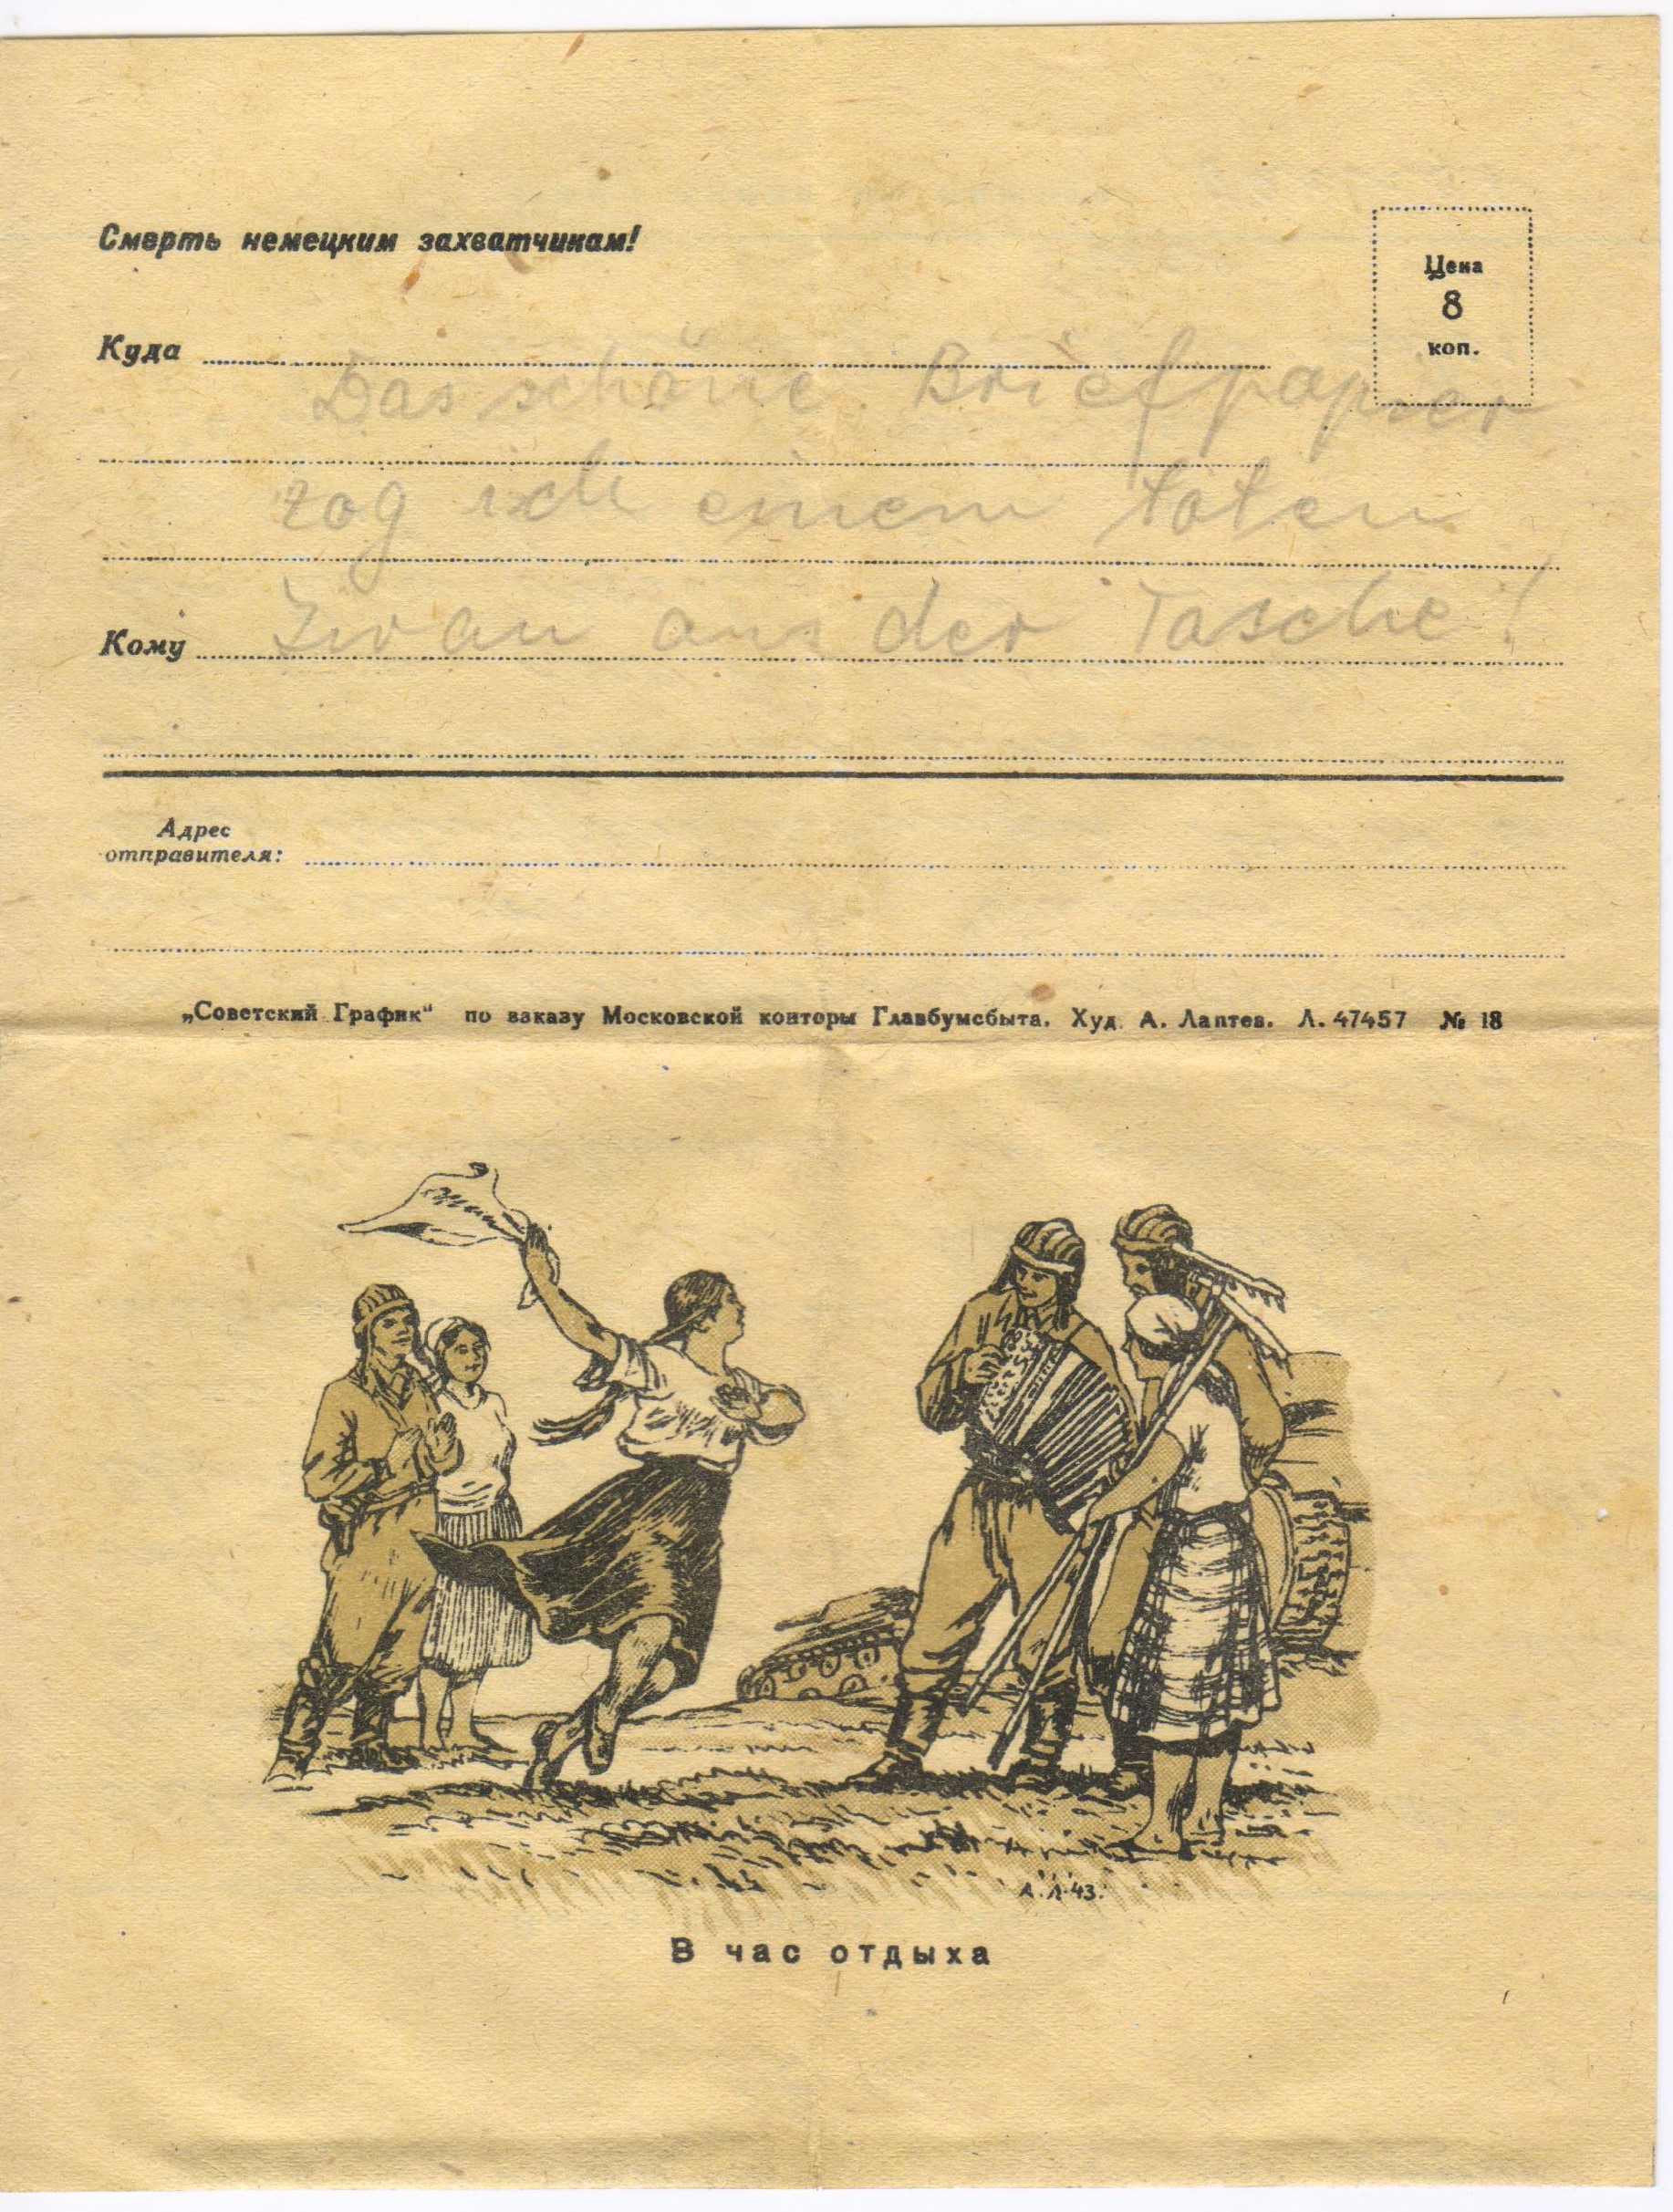 Смерть немецким захватчикам!
Цена
8
коп.
Куда
Das schöne Briefpapier
zog ich einem toten
Kому
Iwan aus der Tasche!
Адрес
отправителя:
„Советский График“ по заказу Московской конторы Главбумсбыта. Худ. А. Лаптев. Л. 47457 № 18
А.Л.43.
В час отдыха